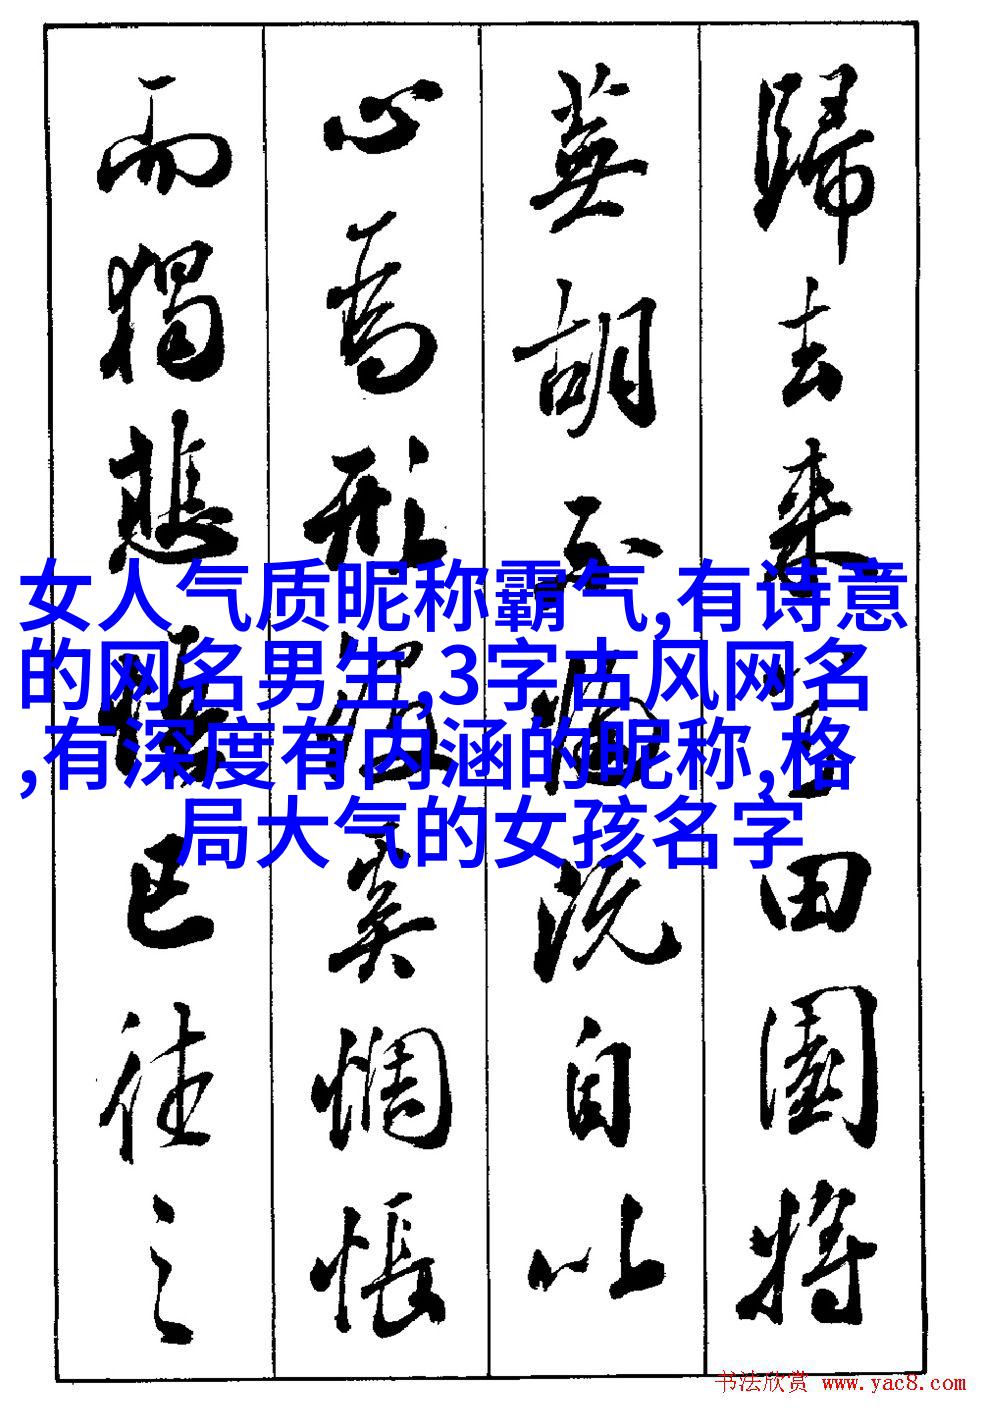 歸去來兮田園將
蕪胡不歸既自以
心為形役奚惆悵
而獨悲悟已往之
女人气质昵称霸气,有诗意
的网名男生,3字古风网名
,有深度有内涵的昵称,格
局大气的女孩名字
书法欣赏 www.yac8.com